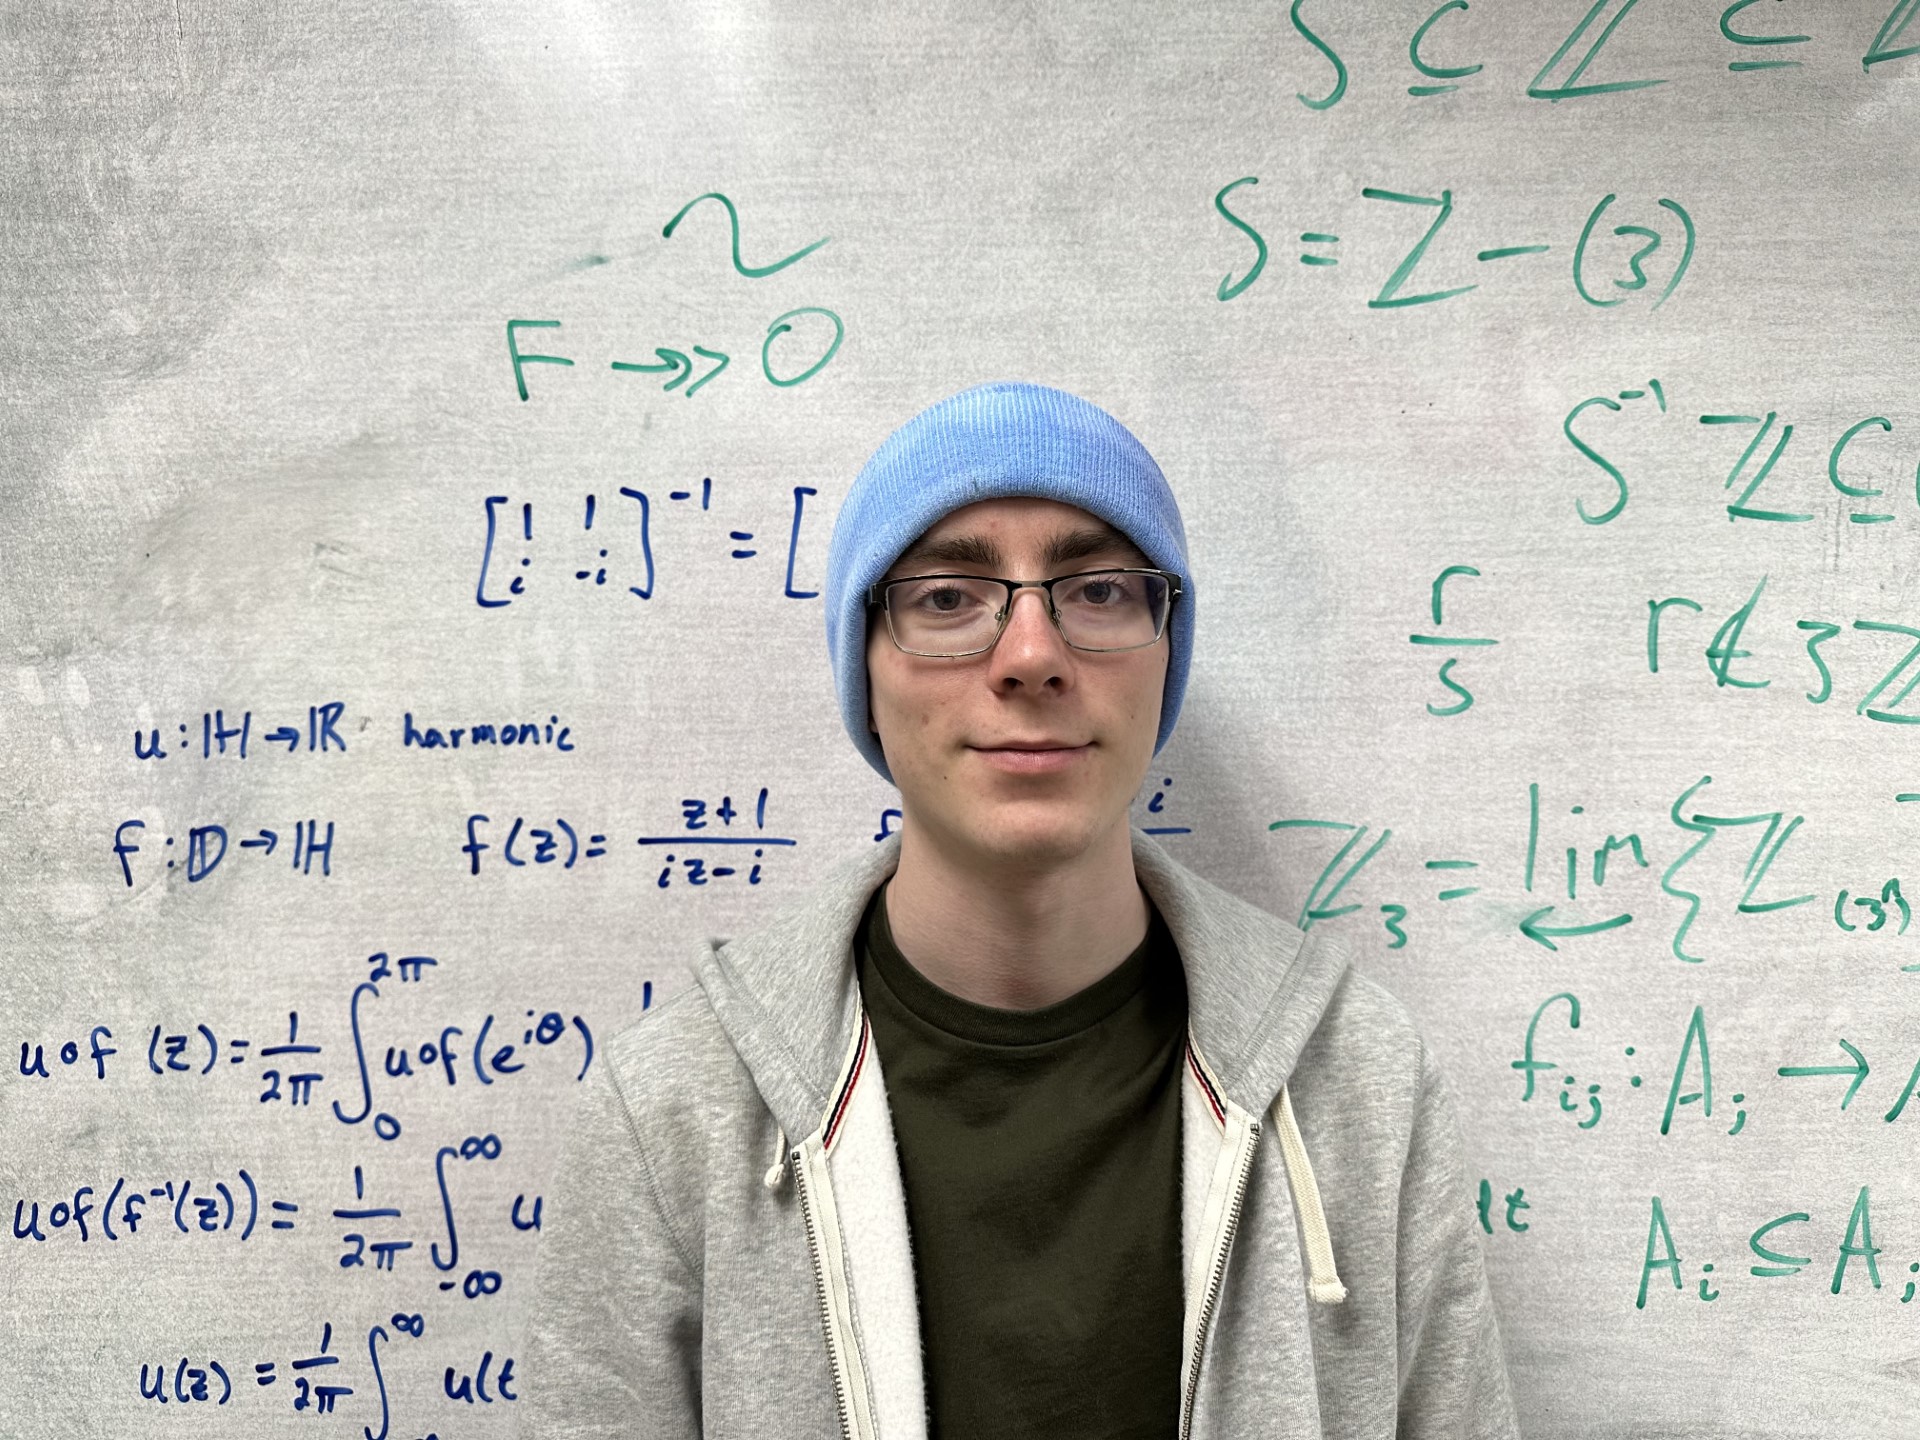 ∼
F ↠> O
[1 1; i -i]⁻¹ = [
u : ℍ → ℝ harmonic
f : 𝔻 → ℍ f(z) = (z+1)/(iz-i) i
u∘f (z) = 1/2π ∫₀^2π u∘f(e^iθ) 1
u∘f(f⁻¹(z)) = 1/2π ∫_-∞^∞ u
u(z) = 1/2π ∫^∞ u(t
S ⊆ ℤ ⊆
S = Z - (3)
S⁻¹ ℤ ⊆
r/s r ∉ 3ℤ
ℤ₃ = lim ← { ℤ
f_ij : A_j →
A_i ⊆ A_j